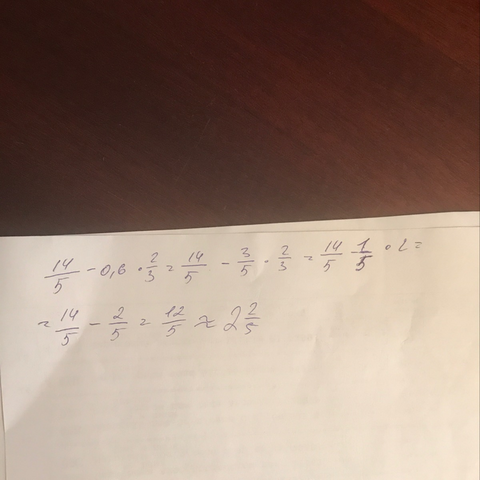 14/5 - 0,6 · 2/3 = 14/5 - 3/5 · 2/3 = 14/5 1/5 · 2 =
= 14/5 - 2/5 = 12/5 ≈ 2 2/5